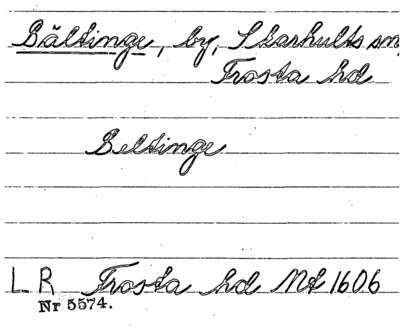 Bältinge, by, Skarhults sn,
Frosta hd
Beltinge
LR Frosta hd Mt 1606
Nr 5574.